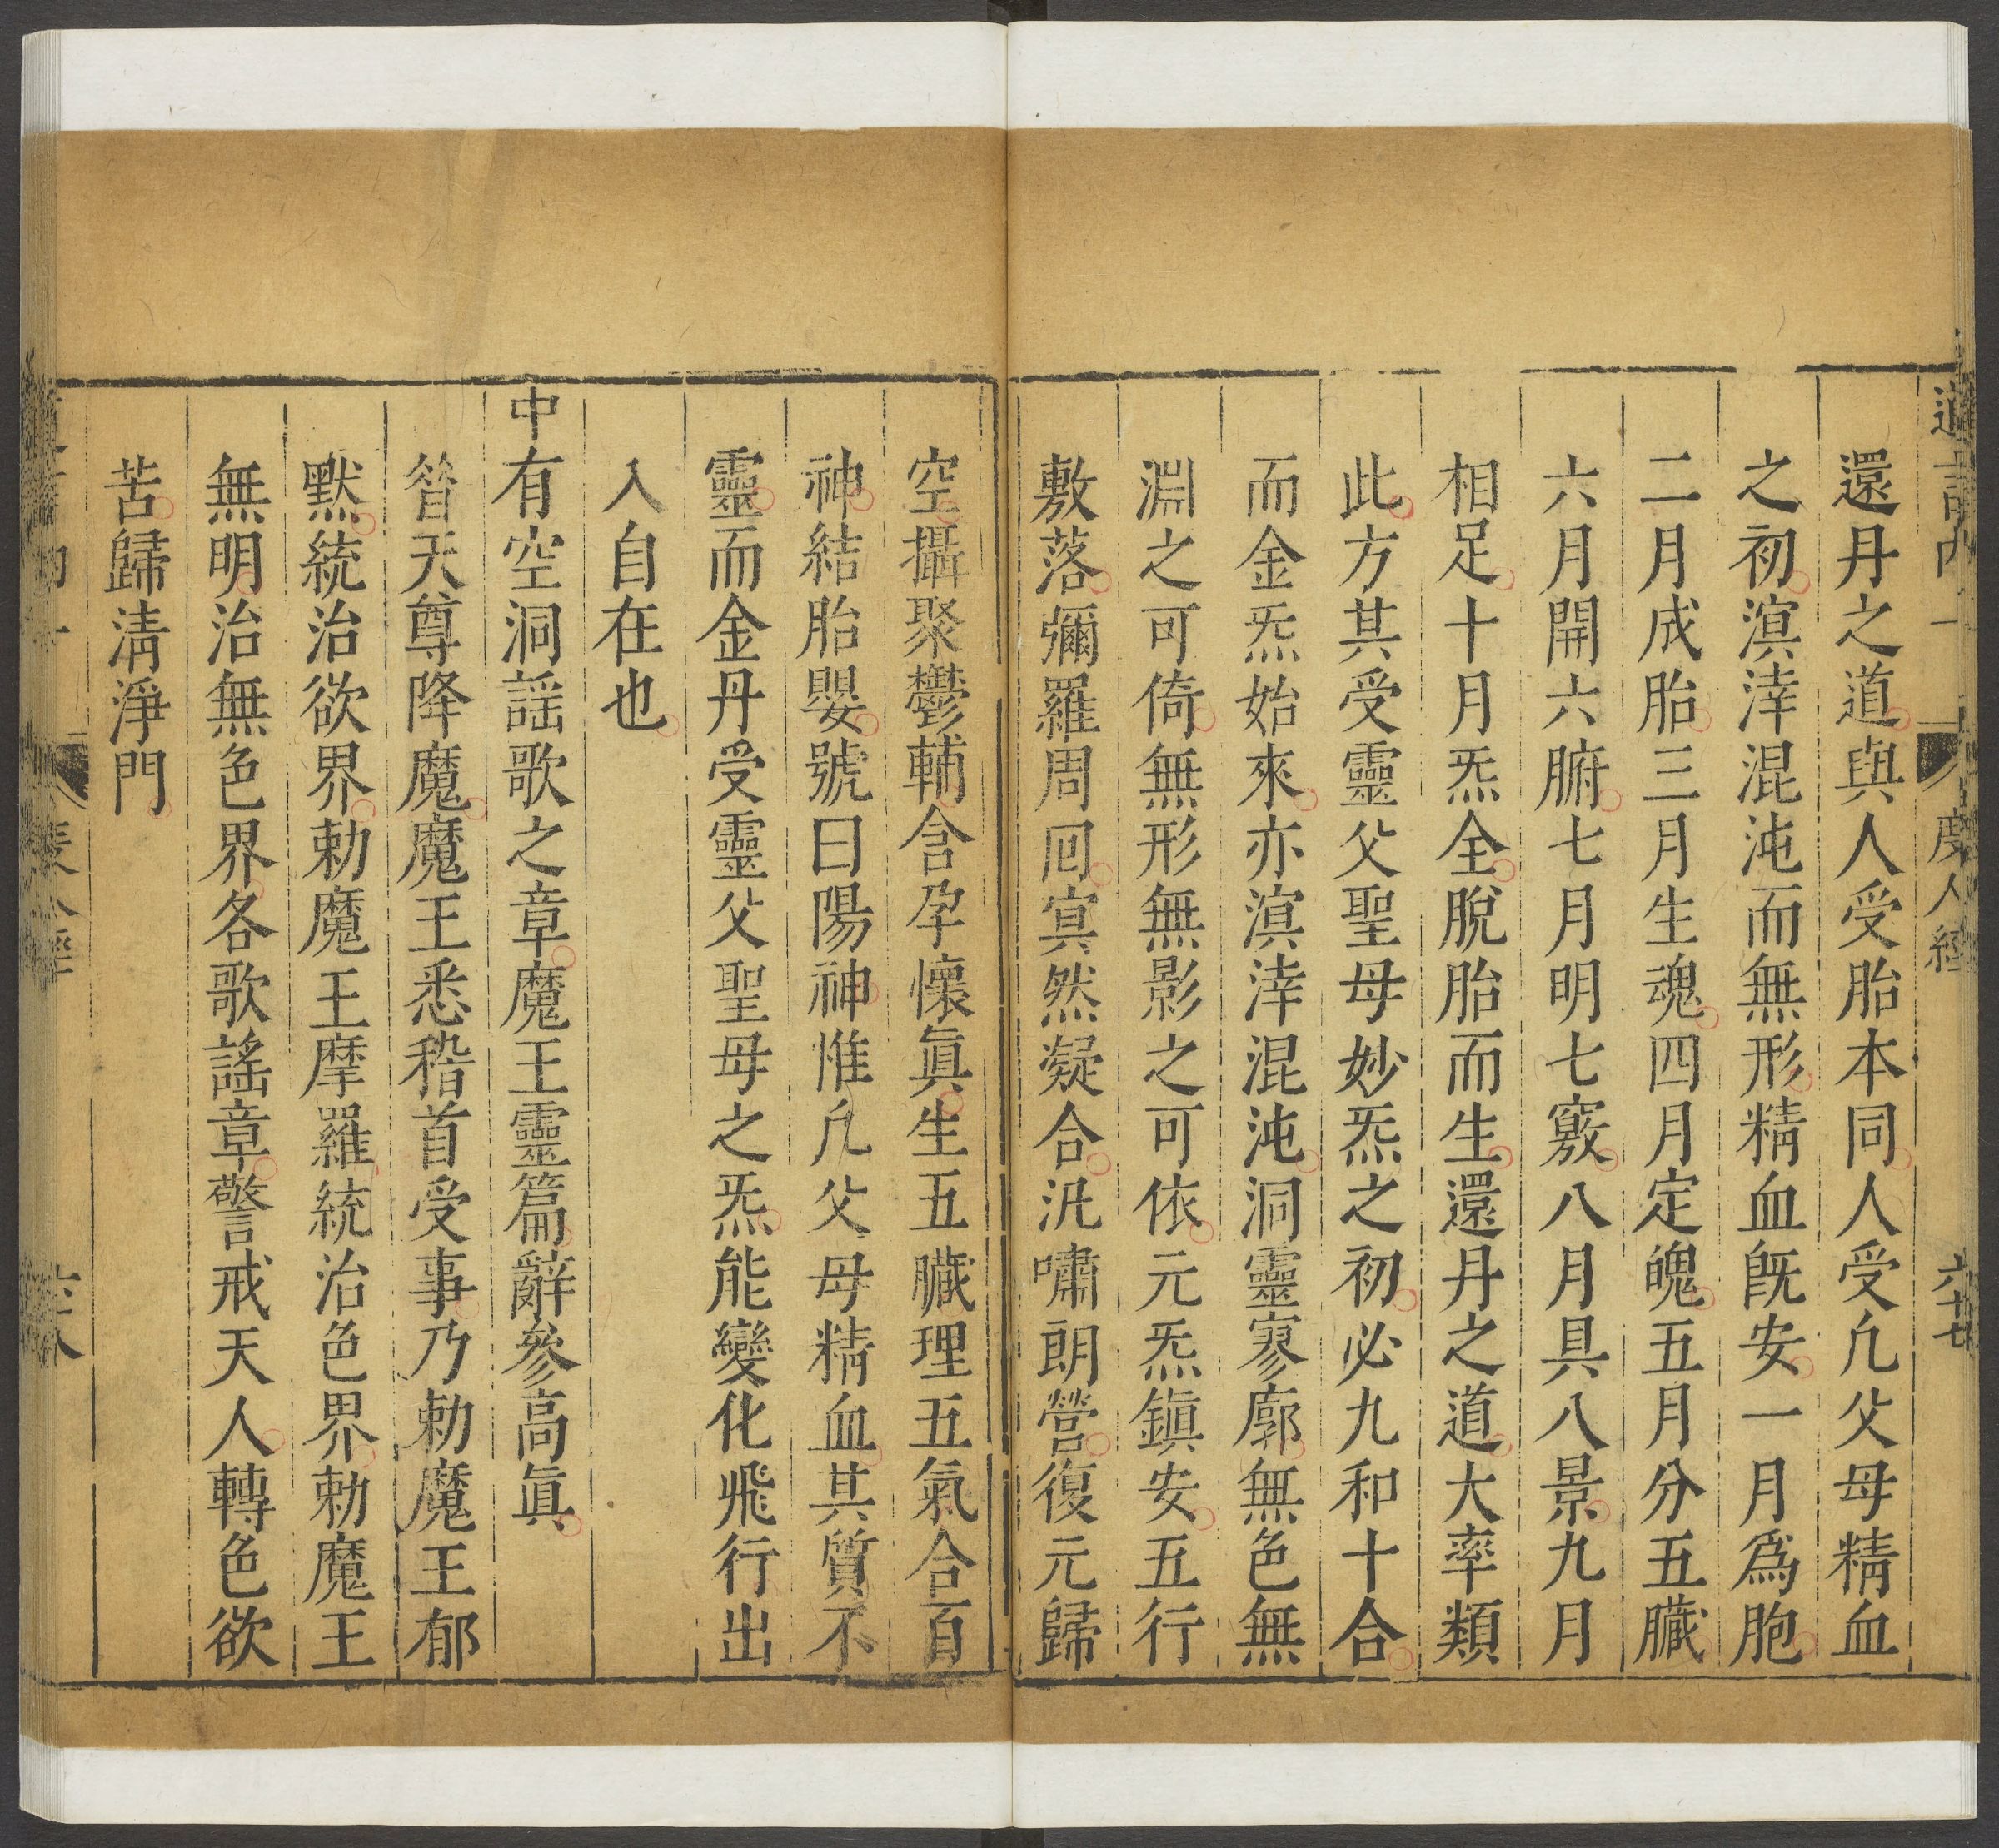 度人經
六十七
還丹之道與人受胎本同人受凢父母精血
之初溟涬混沌而無形精血旣安一月爲胞
二月成胎三月生魂四月定魄五月分五臟
六月開六腑七月明七竅八月具八景九月
相足十月炁全脫胎而生還丹之道大率類
此方其受靈父聖母妙炁之初必九和十合
而金炁始來亦溟涬混沌洞靈寥廓無色無
淵之可倚無形無影之可依元炁鎮安五行
敷落彌羅周囘寘然凝合汎嘯朗營復元歸
空攝聚鬱輔含孕懷眞生五臟理五氣合百
神結胎嬰號曰陽神惟凢父母精血其質不
靈而金丹受靈父聖母之炁能變化飛行出
入自在也
中有空洞謡歌之章魔王靈篇辭參高眞
昝天尊降魔魔王悉稽首受事乃勅魔王郁
默統治欲界勅魔王摩羅統治色界勅魔王
無明治無色界各歌謡章警戒天人轉色欲
苦歸淸淨門